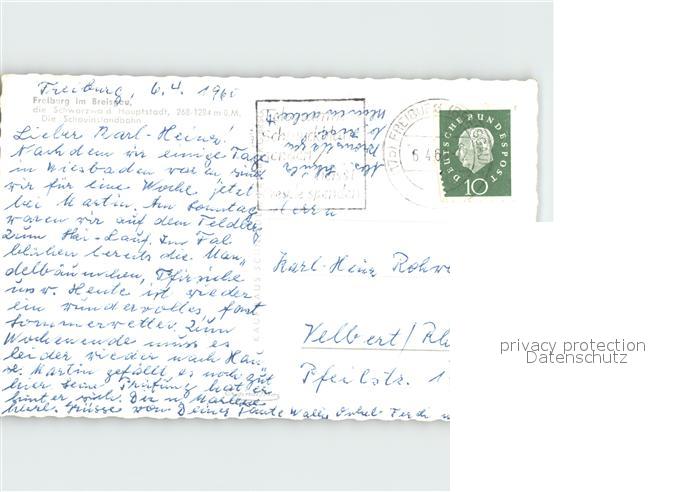 Freiburg, 6.4. 1960
Freiburg im Breisgau,
die Schwarzwald-Hauptstadt, 268-1284 m ü. M.
Die Schauinslandbahn
Lieber Karl-Heinz!
Nachdem wir einige Tage
in Wiesbaden waren sind
wir für eine Woche jetzt
bei Martin. Am Sonntag
waren wir auf dem Feldberg
zum Ski-Lauf. Im Tal
blühen bereits die Man-
delbäumchen, Pfirsiche
usw. Heute ist wieder
ein wundervolles, fast
Sommerwetter. Zum
Wochenende muss es
leider wieder nach Hau-
se. Martin gefällt es noch gut
hier seine Prüfung hat er
hinter sich. Dir u. Marlene
herzl. Grüsse von Deiner Tante Wally Onkel Ferdi
Herrn
Karl-Heinz Rohw
Velbert/Rh
Pfeilstr. 1
FREIBURG
6.4.6
spenden
DEUTSCHE BUNDESPOST
10
privacy protection
Datenschutz